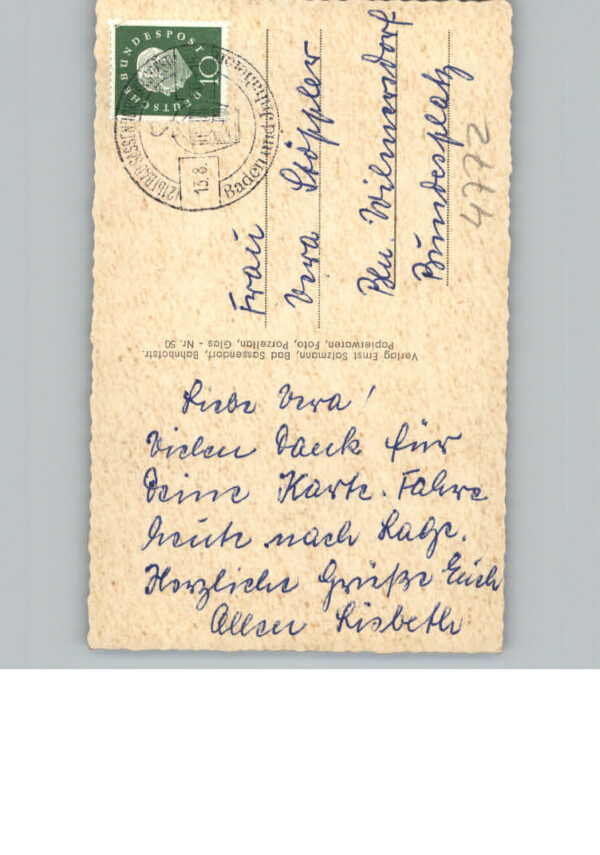 DEUTSCHE BUNDESPOST
10
(21b) BAD SASSENDORF
13.8.
Baden und
Frau
Vera Stöppler
Bln. Wilmersdorf
Bundesplatz
4772
Verlag Ernst Salzmann, Bad Sassendorf, Bahnhofstr.
Papierwaren, Foto, Porzellan, Glas - Nr. 50
Liebe Vera!
Vielen Dank für
Deine Karte. Fahre
heute nach Lage.
Herzliche Grüße Euch
Allen Lisbeth